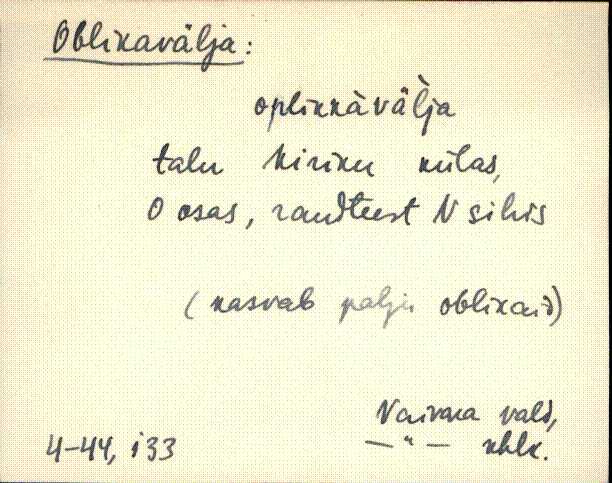 Oblikavälja:
oplikkàvä̀lja
talu kiriku külas,
O osas, raudteest N sihis
(kasvab palju oblikaid)
Vaivara vald,
4-44, i33 —"— khlk.